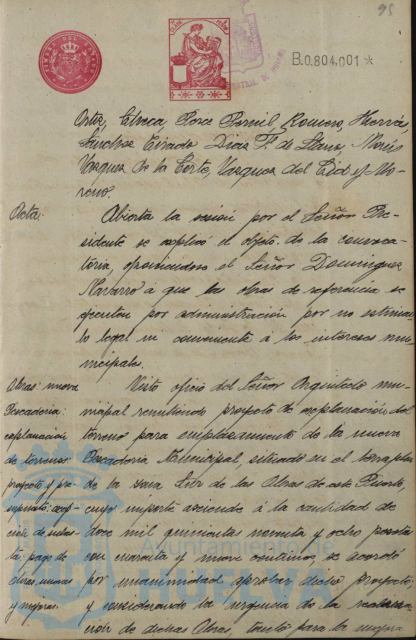 95
B.0.804,001*
Ortiz, Checa, Ponce Bernil, Romero, Hierro,
Sanchez Tirado, Diaz F. de Llera, Marin
Vazquez de la Corte, Vazquez del Cid y Mo-
reno.
Acta:
Abierta la sesion por el Señor Pre-
sidente se explicó el objeto de la convoca-
toria, oponiendose el Señor Dominguez
Navarro á que las obras de referencia se
ejecuten por administración por no estimar-
lo legal ni conveniente á los intereses mu-
nicipales.
Obras: nueva
Pescaderia:
explanación
de terrenos
proyecto y pre-
supuesto:
el pago de
obras, nuevas
y mejoras.
Visto oficio del Señor Arquitecto mu-
nicipal remitiendo proyecto de explanación de
terreno para emplazamiento de la nueva
Pescaderia Municipal, situado en el terraplen
de la zona de las Obras de este Puerto,
cuyo importe asciende á la cantidad de
doce mil quinientas noventa y ocho pesetas
con cuarenta y nueve centimos, se acordó
por unanimidad aprobar dicho proyecto,
y considerando la urgencia de la realiza-
ción de dichas Obras, tanto para la mejor
Ayuntamiento de
HUELVA